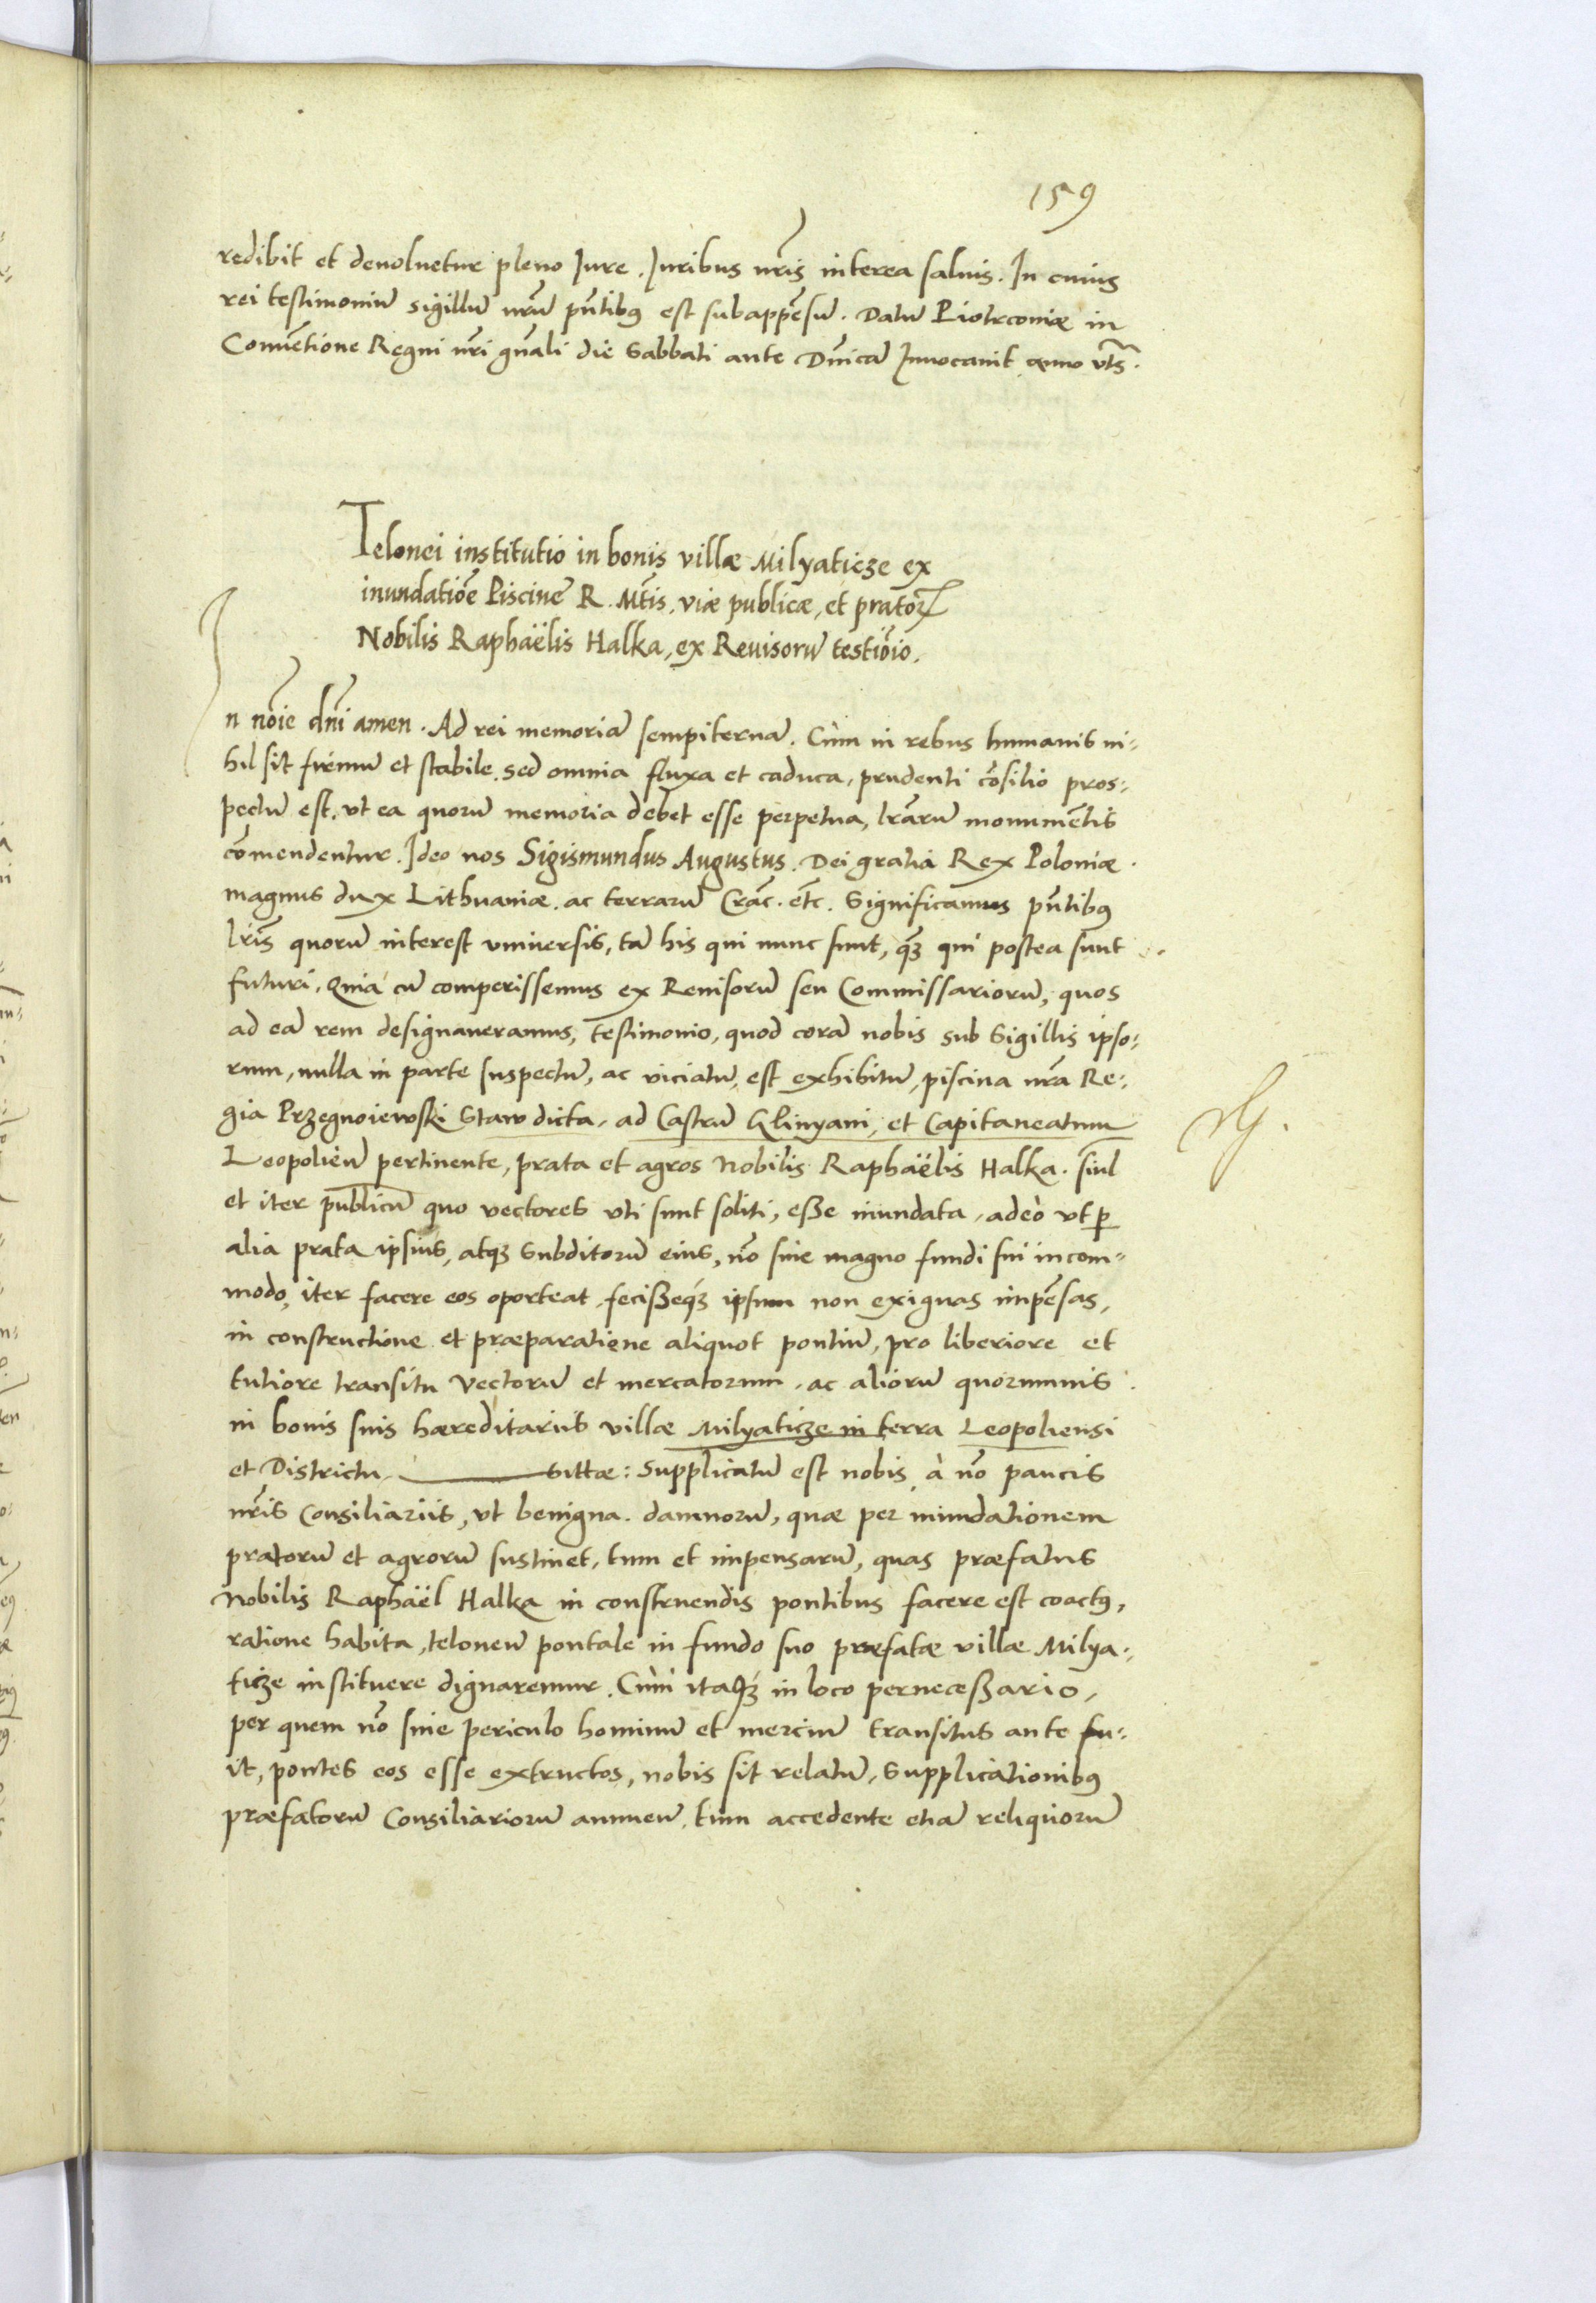 159
redibit et devoluetur pleno Jure. Juribus nr̃is interea saluis. In cuius
rei testimoniũ sigillũ nr̃ũ pñtibꝰ est subappẽsũ. Datũ Piotrconiæ in
Conuẽtione Regni nr̃i gñali die Sabbati ante Dñicã Inuocauit anno vts̃.
Telonei institutio in bonis villæ Milyaticze ex
inundatiõe Piscinẽ R. Mtĩs, viæ publicæ, et pratoꝝ
Nobilis Raphaëlis Halka, ex Reuisorũ testiõio.
In nõie dñi amen. Ad rei memoriã sempiternã. Cùm in rebus humanis ni-
hil sit firmũ et stabile, sed omnia fluxa et caduca, prudenti cõsilio pros-
pectũ est, vt ea quorũ memoria debet esse perpetua, lr̃arũ monumẽtis
cõmendentur. Ideo nos Sigismundus Augustus. Dei gratia Rex Poloniæ.
magnus dux Lithuaniæ. ac terrarũ Crac̃. etc̃. Significamus pñtibꝰ
lr̃is quorũ interest vniuersis, tã his qui nunc sunt, qꝫ qui postea sunt
futuri, Quia cũ comperissemus ex Reuisorũ seu Commissariorũ, quos
ad eã rem designaueramus, testimonio, quod corã nobis sub Sigillis ipso-
rum, nulla in parte suspectũ, ac viciatũ, est exhibitũ, piscinã nr̃ã Re-
gia Przegnoiewski Staw dicta, ad Castrũ Glinyani, et Capitaneatum
Leopolieñ pertinente, prata et agros Nobilis Raphaëlis Halka. siñl
et iter publicũ quo vectores vti sunt soliti, esse inundata, adeò vt ꝑ
alia prata ipsius, atqꝫ Subditorũ eius, nõ sine magno fundi sui incom-
modo, iter facere eos oporteat, fecisseqꝫ ipsum non exiguas impẽsas,
in constructione et præparatione aliquot pontiũ, pro liberiore et
tutiore transitu Vectorũ et mercatorum, ac aliorũ quorumuis
in bonis suis hæreditariis villæ Milyaticze in terra Leopoliensi
et Districtu Sittæ: Supplicatũ est nobis à nõ paucis
nr̃is Consiliariis, vt benigna. damnorũ, quæ per inundationem
pratorũ et agrorũ sustinet, tum et impensarũ, quas præfatus
Nobilis Raphaël Halka in construendis pontibus facere est coactꝰ,
ratione habita, teloneũ pontale in fundo suo præfatæ villæ Milya-
ticze instituere dignaremur. Cùm itaqꝫ in loco pernecessario,
per quem nõ sine periculo hominũ et merciũ transitus ante fu-
it, pontes eos esse extructos, nobis sit relatũ, Supplicationibꝰ
præfatorũ Consiliariorũ annueñ, tum accedente etiã reliquorũ